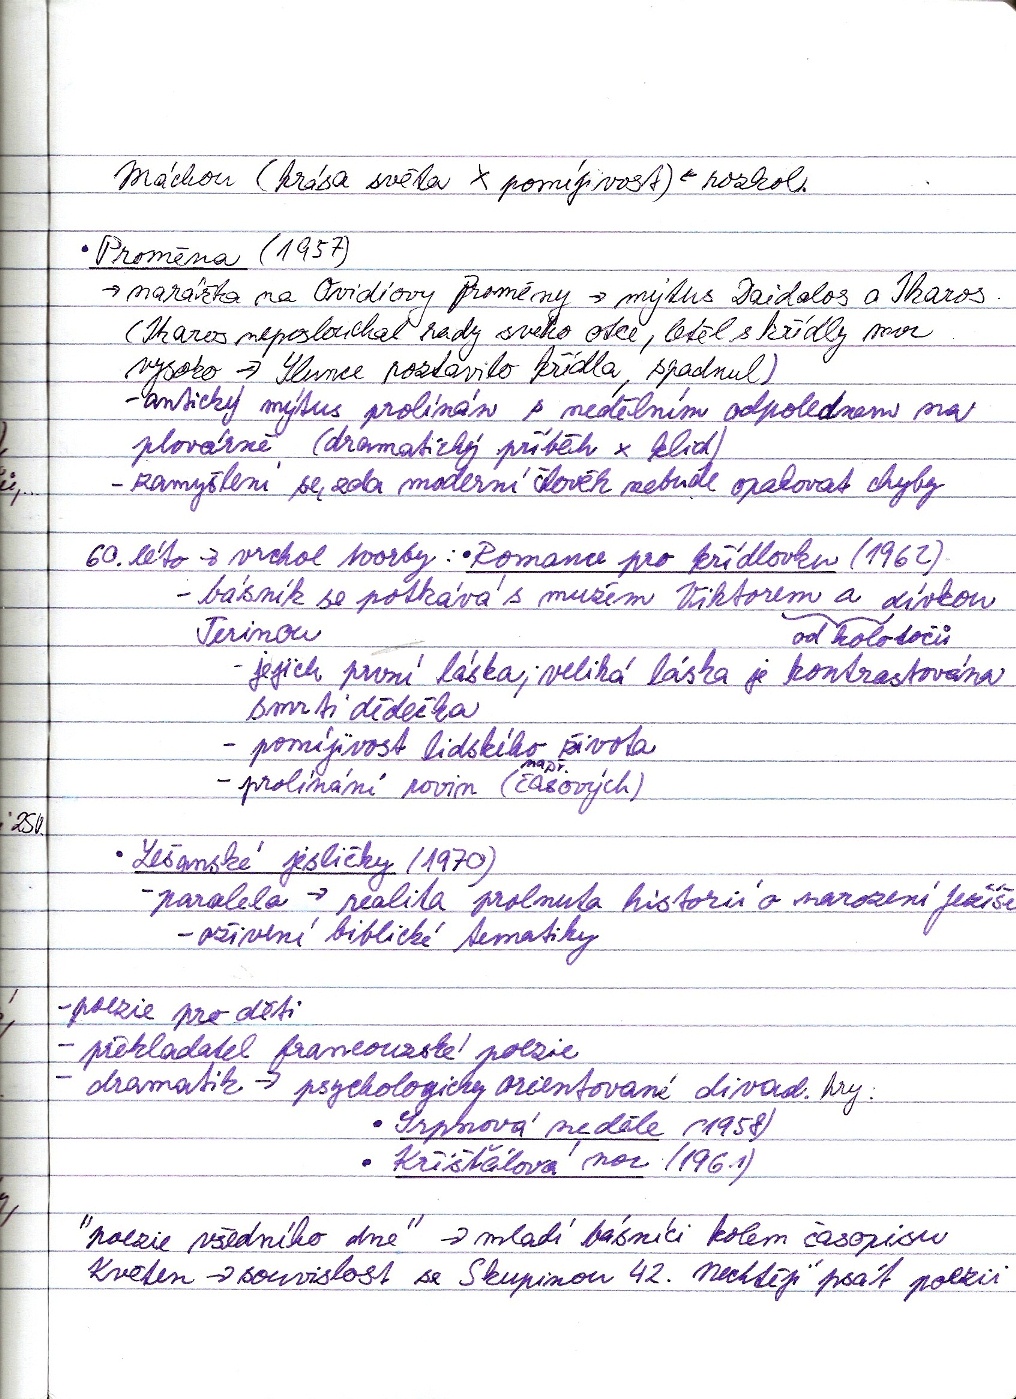 Máchou (krása světa x pomíjivost) ← rozkol.
• Proměna (1957)
→ narážka na Ovidiovy Proměny → mýtus Daidalos a Ikaros.
(Ikaros neposlouchal rady svého otce, letěl s křídly moc
vysoko → Slunce roztavilo křídla, spadnul)
- antický mýtus prolínán s nedělním odpolednem na
plovárně (dramatický příběh x klid)
- zamyšlení se, zda moderní člověk nebude opakovat chyby
60. léto → vrchol tvorby: • Romance pro křídlovku (1962)
- básník se potkává s mužem Viktorem a dívkou
Terinou
od kolotočů
- jejich první láska; veliká láska je kontrastována
smrti dědečka
- pomíjivost lidského života
např.
- prolínání rovin (časových)
250.
• Lešanské jesličky (1970)
- paralela → realita prolnuta historií o narození Ježíše
- oživení biblické tematiky
- poezie pro děti
- překladatel francouzské poezie
- dramatik → psychologicky orientované divad. hry:
• Srpnová neděle (1958)
• Křišťálová noc (1961)
"poezie všedního dne" → mladí básníci kolem časopisu
Květen → souvislost se Skupinou 42. Nechtějí psát poezii